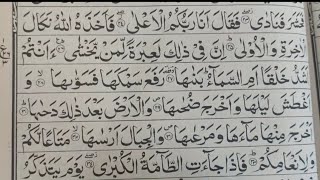 فَحَشَرَ فَنَادٰى ۖ فَقَالَ اَنَا رَبُّكُمُ الْاَعْلٰى ۖ فَاَخَذَهُ اللّٰهُ نَكَالَ
الْاٰخِرَةِ وَالْاُوْلٰى ؕ اِنَّ فِيْ ذٰلِكَ لَعِبْرَةً لِّمَنْ يَّخْشٰى ؕ ءَاَنْتُمْ
اَشَدُّ خَلْقًا اَمِ السَّمَآءُ ؕ بَنٰىهَا ۥ رَفَعَ سَمْكَهَا فَسَوّٰىهَا ۙ
وَاَغْطَشَ لَيْلَهَا وَاَخْرَجَ ضُحٰىهَا ۪ وَالْاَرْضَ بَعْدَ ذٰلِكَ دَحٰىهَا ؕ
اَخْرَجَ مِنْهَا مَآءَهَا وَمَرْعٰىهَا ۪ وَالْجِبَالَ اَرْسٰىهَا ۙ مَتَاعًا لَّكُمْ
وَلِاَنْعَامِكُمْ ؕ فَاِذَا جَآءَتِ الطَّآمَّةُ الْكُبْرٰى ۖ يَوْمَ يَتَذَكَّرُ